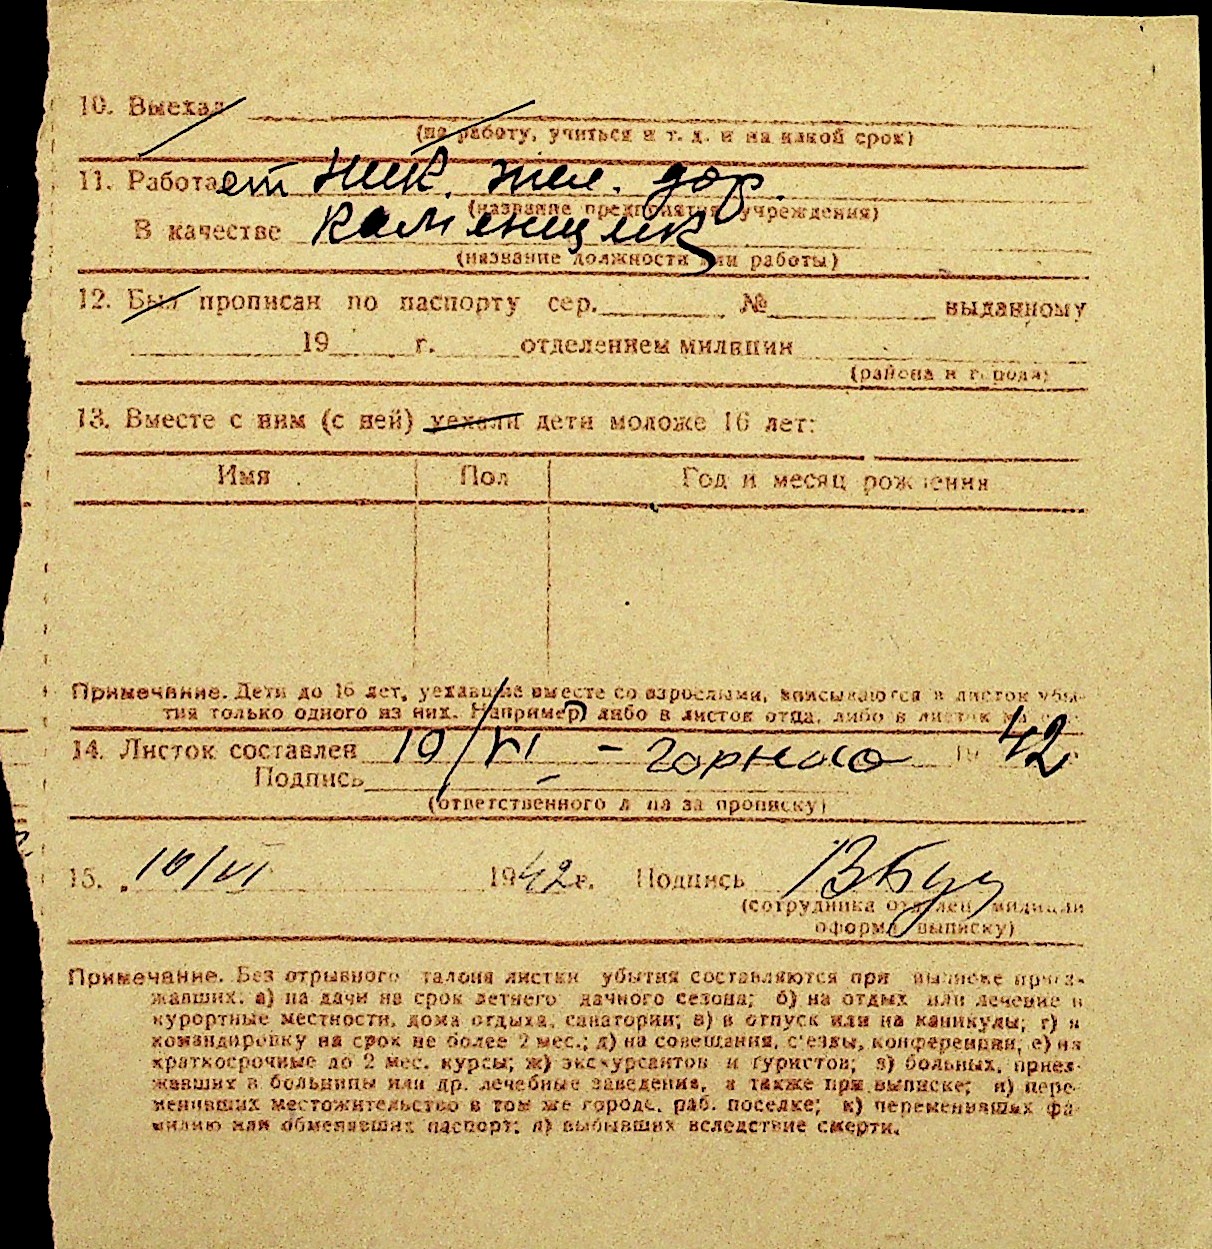 10. Выехал
(на работу, учиться и т. д. и на какой срок)
11. Работает Ник. жел. дор.
(название предприятия, учреждения)
В качестве каменщик
(название должности или работы)
12. Был прописан по паспорту сер. № выданному
19 г. отделением милиции
(района и города)
13. Вместе с ним (с ней) уехали дети моложе 16 лет:
Имя Пол Год и месяц рождения
Примечание. Дети до 16 лет, уехавшие вместе со взрослыми, вписываются в листок убы-
тия только одного из них. Например, либо в листок отца, либо в листок
14. Листок составлен 10/VI – 19 42
Подпись
(ответственного лица за прописку)
15. 10/VI 1942 г. Подпись
(сотрудника отделен. милиции
оформ. выписку)
Примечание. Без отрывного талона листки убытия составляются при выписке приез-
жавших: а) на дачи на срок летнего дачного сезона; б) на отдых или лечение в
курортные местности, дома отдыха, санатории; в) в отпуск или на каникулы; г) в
командировку на срок не более 2 мес.; д) на совещания, с'езды, конференции; е) на
краткосрочные до 2 мес. курсы; ж) экскурсантов и туристов; з) больных, приез-
жавших в больницы или др. лечебные заведения, а также при выписке; и) пере-
менивших местожительство в том же городе, раб. поселке; к) переменивших фа-
милию или обменявших паспорт; л) выбывших вследствие смерти.